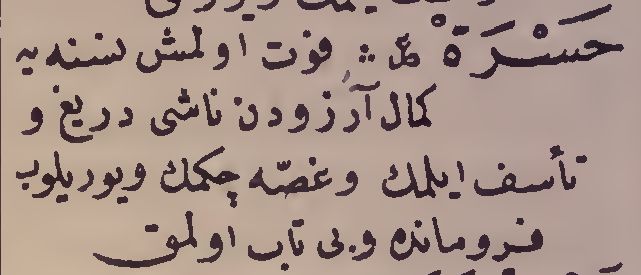 حَسْرَةْ ع ؞ فوت اولمش نسنه‌يه
كمال آرزودن ناشى دريغ و
تأسف ايلمك وغصّه چكمك ويوريلوب
فرومانده وبى تاب اولمق